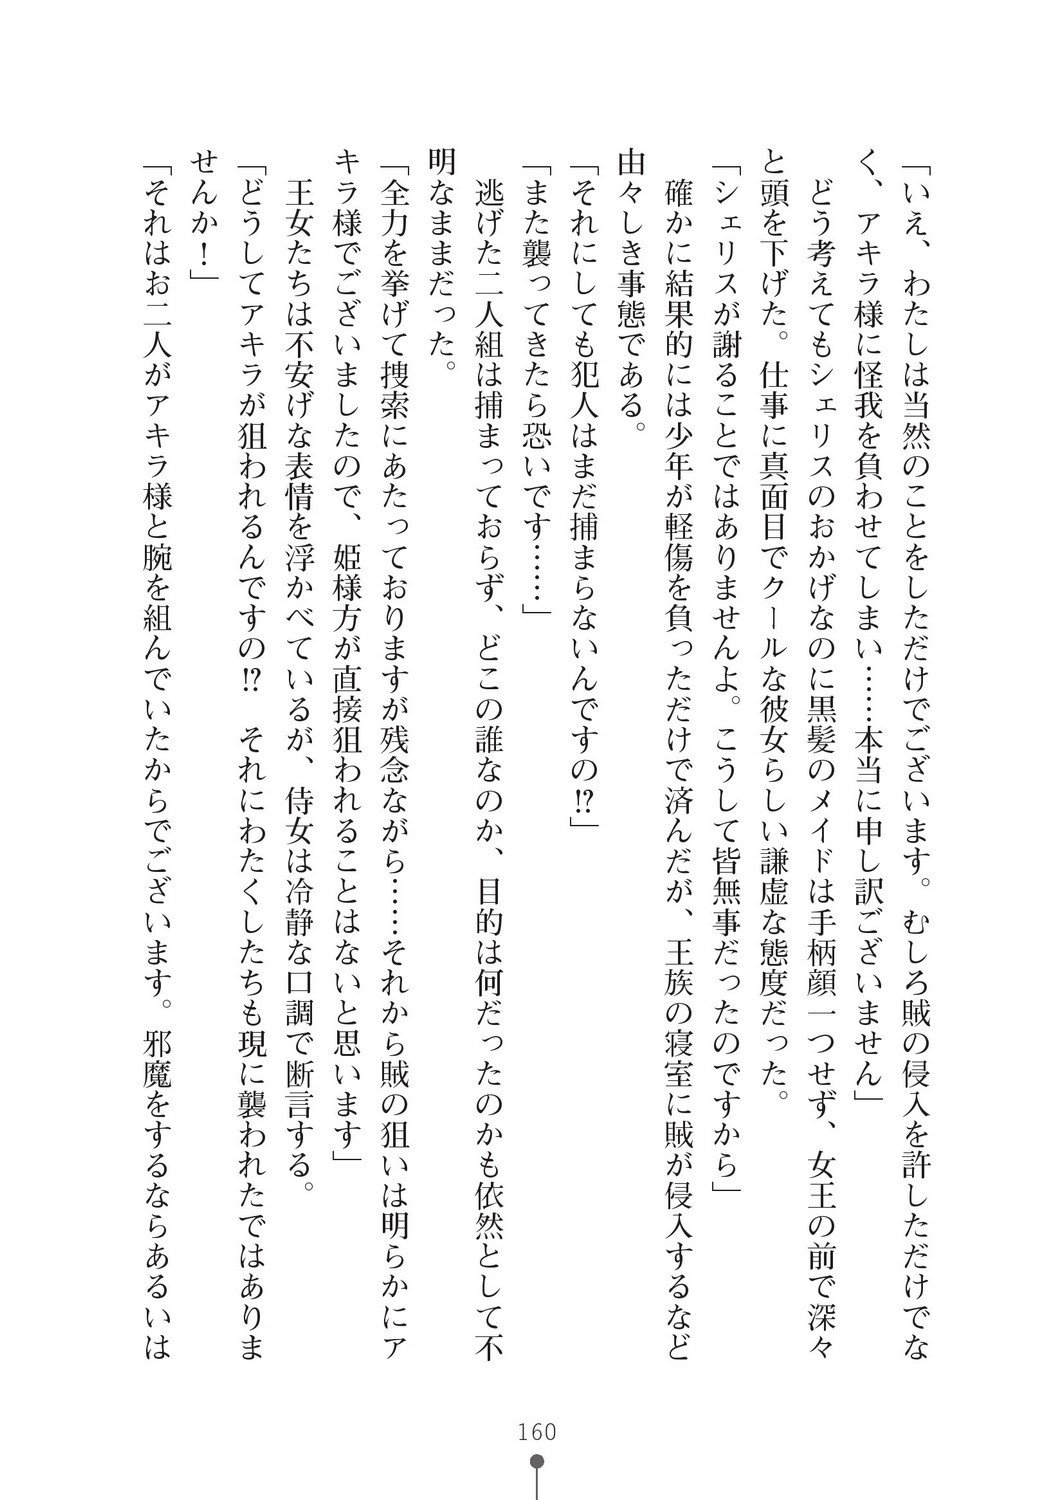 「いえ、わたしは当然のことをしただけでございます。むしろ賊の侵入を許しただけでな
く、アキラ様に怪我を負わせてしまい……本当に申し訳ございません」
　どう考えてもシェリスのおかげなのに黒髪のメイドは手柄顔一つせず、女王の前で深々
と頭を下げた。仕事に真面目でクールな彼女らしい謙虚な態度だった。
「シェリスが謝ることではありませんよ。こうして皆無事だったのですから」
　確かに結果的には少年が軽傷を負っただけで済んだが、王族の寝室に賊が侵入するなど
由々しき事態である。
「それにしても犯人はまだ捕まらないんですの!?」
「また襲ってきたら恐いです……」
　逃げた二人組は捕まっておらず、どこの誰なのか、目的は何だったのかも依然として不
明なままだった。
「全力を挙げて捜索にあたっておりますが残念ながら……それから賊の狙いは明らかにア
キラ様でございましたので、姫様方が直接狙われることはないと思います」
　王女たちは不安げな表情を浮かべているが、侍女は冷静な口調で断言する。
「どうしてアキラが狙われるんですの!?　それにわたくしたちも現に襲われたではありま
せんか！」
「それはお二人がアキラ様と腕を組んでいたからでございます。邪魔をするならあるいは
160